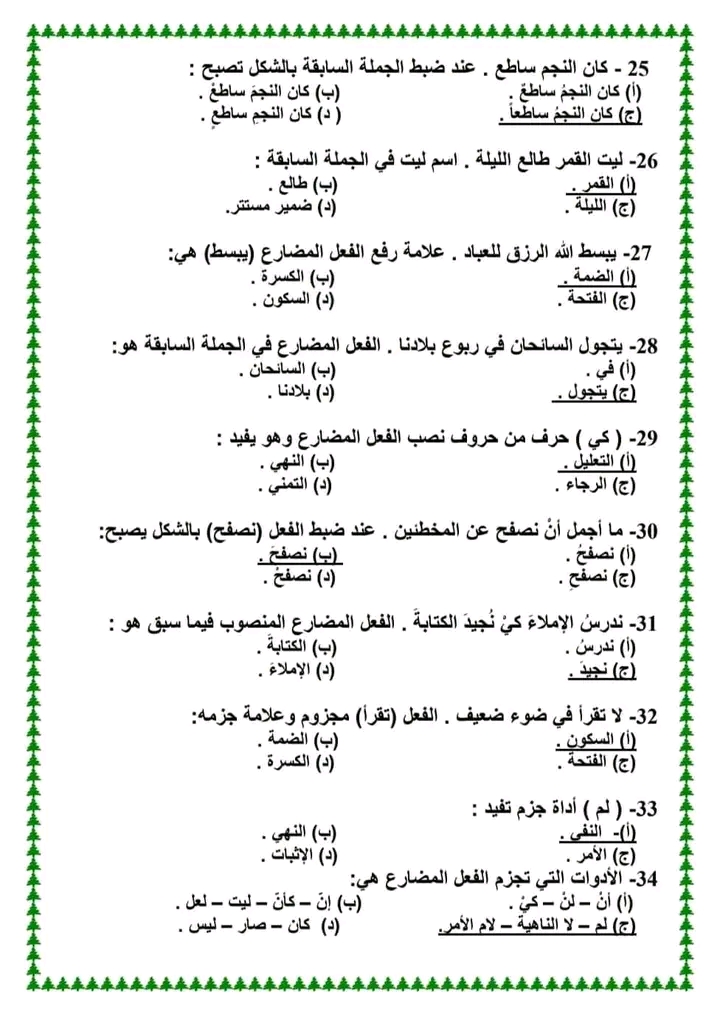 25 - كان النجم ساطع . عند ضبط الجملة السابقة بالشكل تصبح :
(أ) كان النجمُ ساطعٌ . (ب) كان النجمَ ساطعٌ .
(ج) كان النجمُ ساطعاً . ( د) كان النجمِ ساطعٍ .
26- ليت القمر طالع الليلة . اسم ليت في الجملة السابقة :
(أ) القمر . (ب) طالع .
(ج) الليلة . (د) ضمير مستتر.
27- يبسط الله الرزق للعباد . علامة رفع الفعل المضارع (يبسط) هي:
(أ) الضمة . (ب) الكسرة .
(ج) الفتحة . (د) السكون .
28- يتجول السائحان في ربوع بلادنا . الفعل المضارع في الجملة السابقة هو:
(أ) في . (ب) السائحان .
(ج) يتجول . (د) بلادنا .
29- ( كي ) حرف من حروف نصب الفعل المضارع وهو يفيد :
(أ) التعليل . (ب) النهي .
(ج) الرجاء . (د) التمني .
30- ما أجمل أنْ نصفح عن المخطئين . عند ضبط الفعل (نصفح) بالشكل يصبح:
(أ) نصفحُ . (ب) نصفحَ .
(ج) نصفحِ . (د) نصفحْ .
31- ندرسُ الإملاءَ كيْ نُجيدَ الكتابةَ . الفعل المضارع المنصوب فيما سبق هو :
(أ) ندرسُ . (ب) الكتابةَ .
(ج) نجيدَ . (د) الإملاءَ .
32- لا تقرأ في ضوء ضعيف . الفعل (تقرأ) مجزوم وعلامة جزمه:
(أ) السكون . (ب) الضمة .
(ج) الفتحة . (د) الكسرة .
33- ( لم ) أداة جزم تفيد :
(أ)- النفي . (ب) النهي .
(ج) الأمر . (د) الإثبات .
34- الأدوات التي تجزم الفعل المضارع هي:
(أ) أنْ – لنْ – كيْ . (ب) إنّ – كأنّ – ليت – لعل .
(ج) لم – لا الناهية – لام الأمر. (د) كان – صار – ليس .